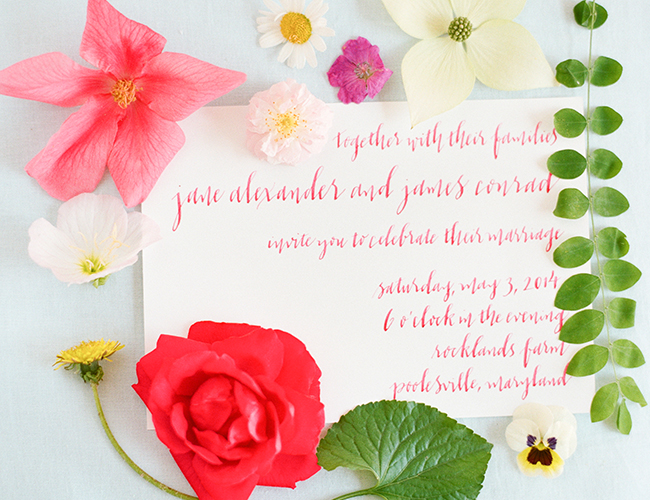 Together with their families
jane alexander and james conrad
invite you to celebrate their marriage
saturday, may 3, 2014
6 o'clock in the evening
rocklands farm
poolesville, maryland